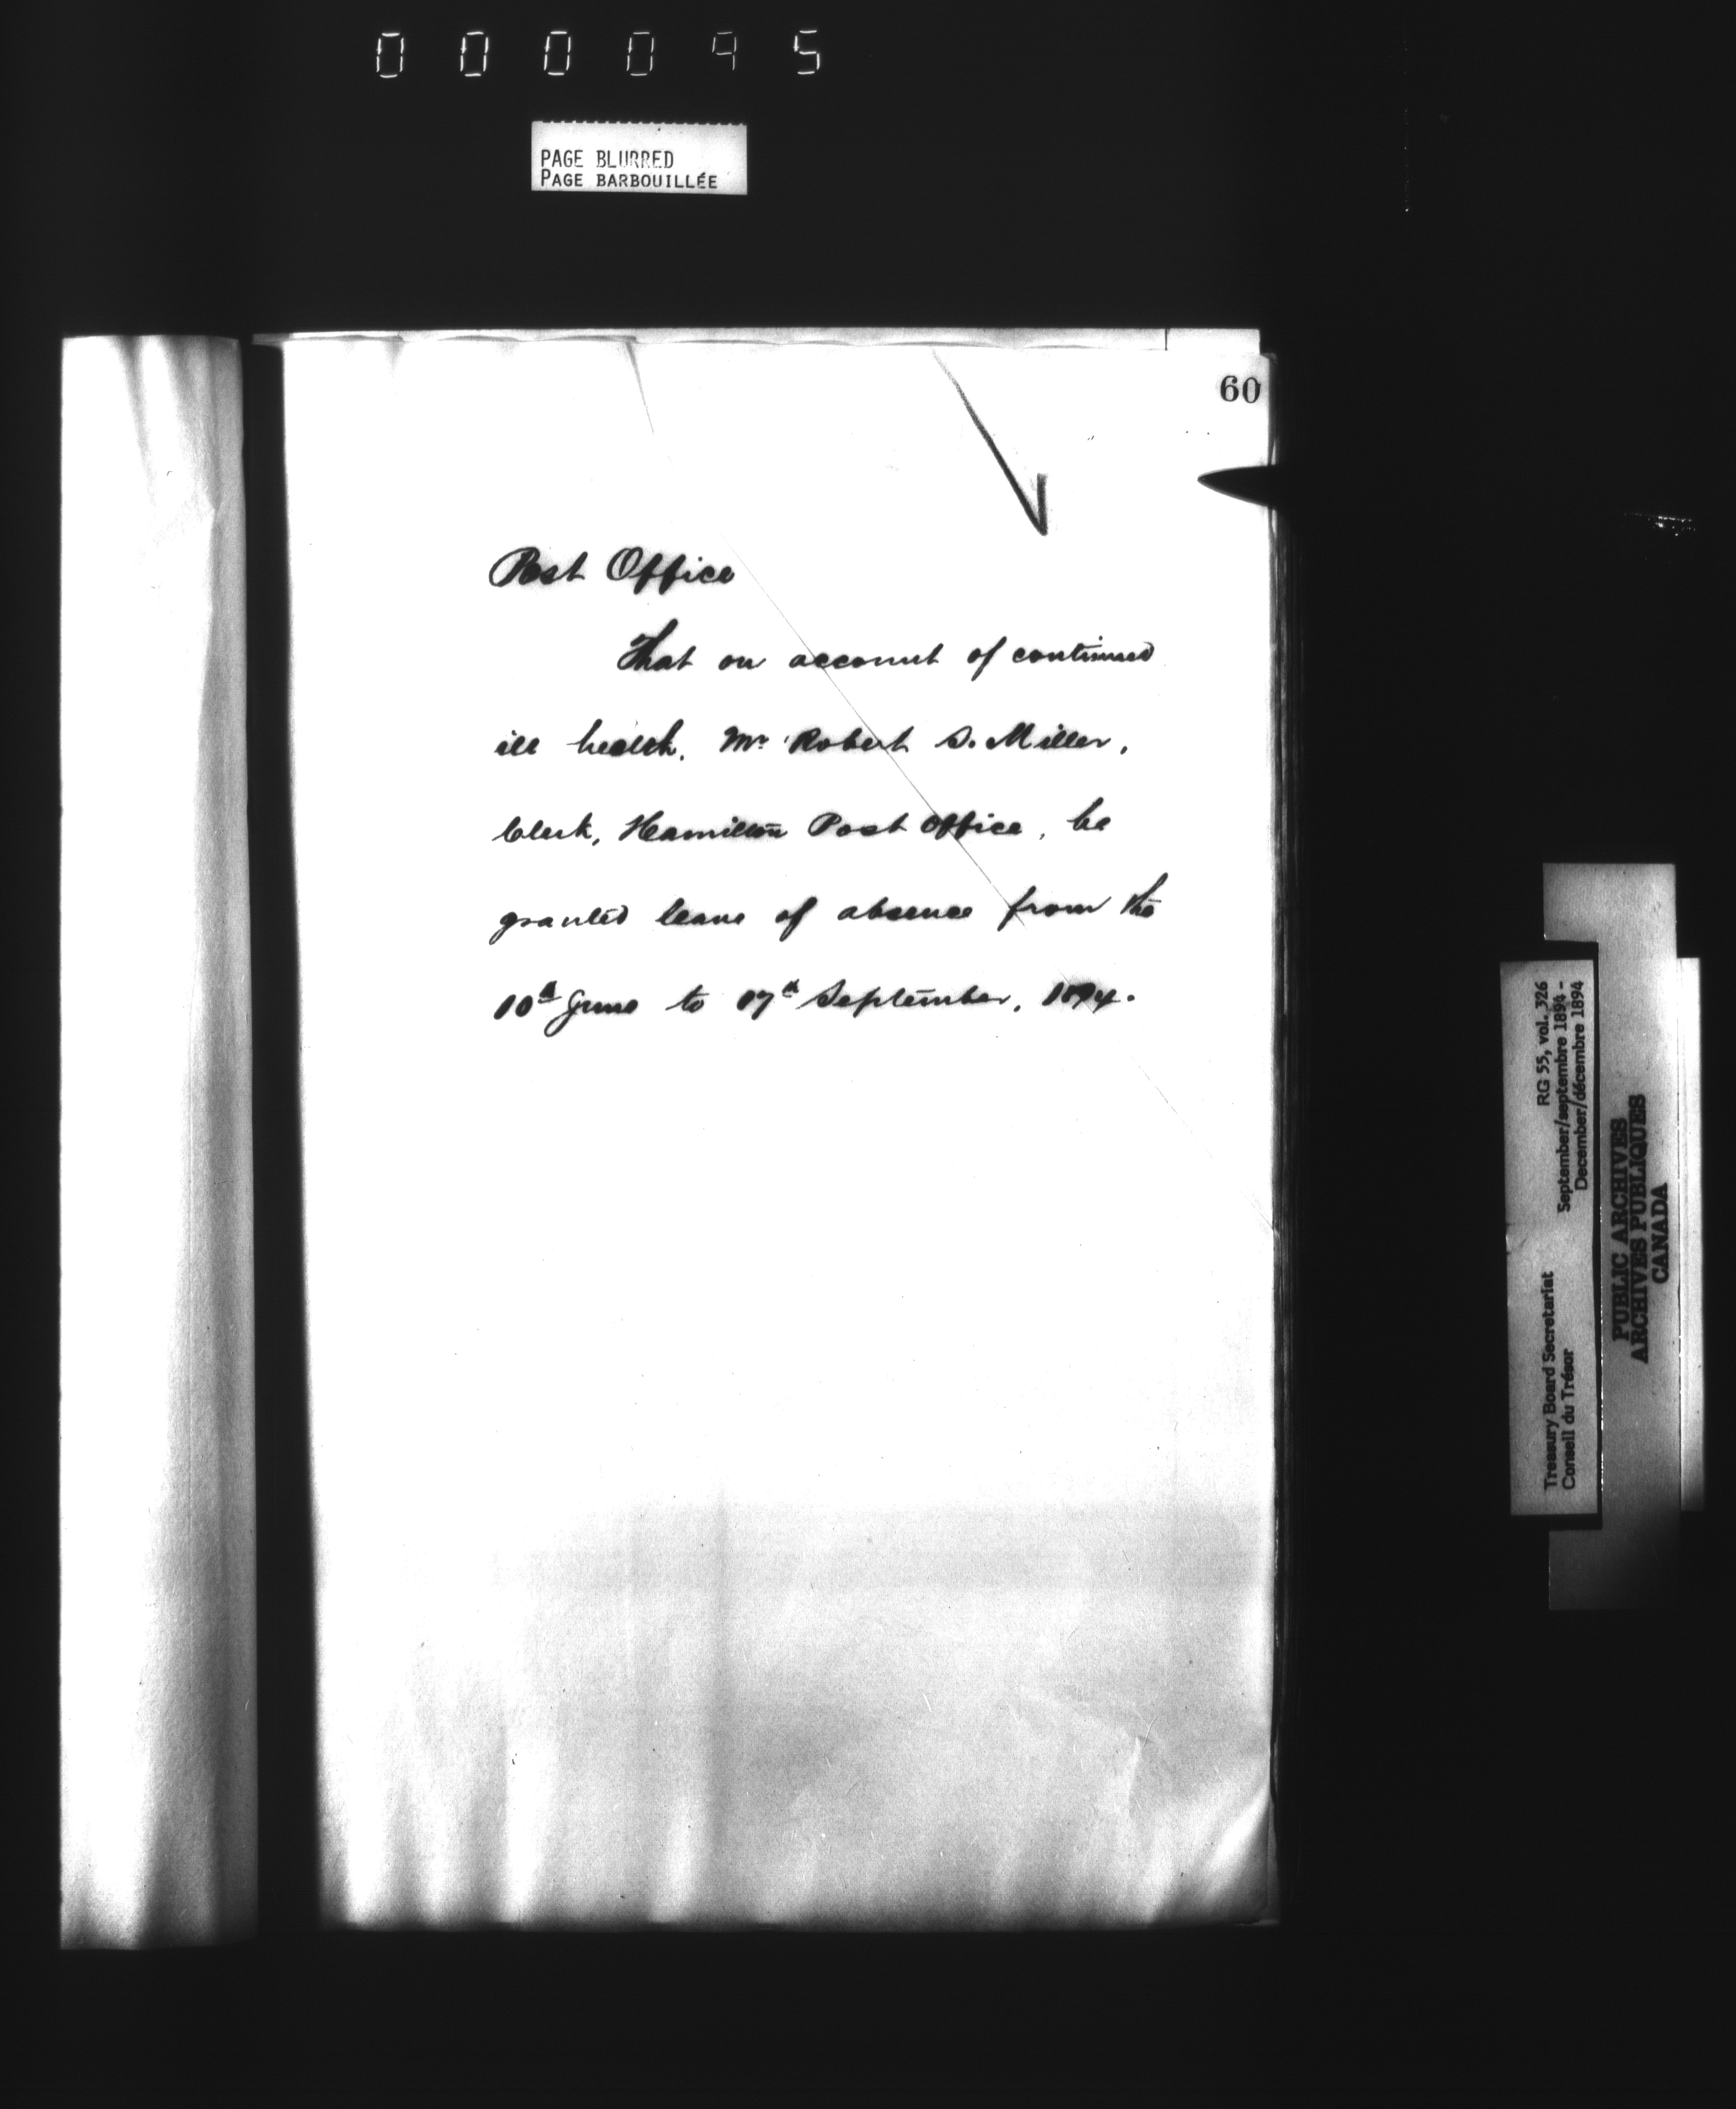 000095
PAGE BLURRED
PAGE BARBOUILLÉE
60
Post Office
That on account of continued
ill health, Mr Robert S. Miller,
Clerk, Hamilton Post Office, be
granted leave of absence from the
10th June to 17th September, 1894.
Treasury Board Secretariat RG 55, vol. 326
Conseil du Trésor September/septembre 1894 -
December/décembre 1894
PUBLIC ARCHIVES
ARCHIVES PUBLIQUES
CANADA